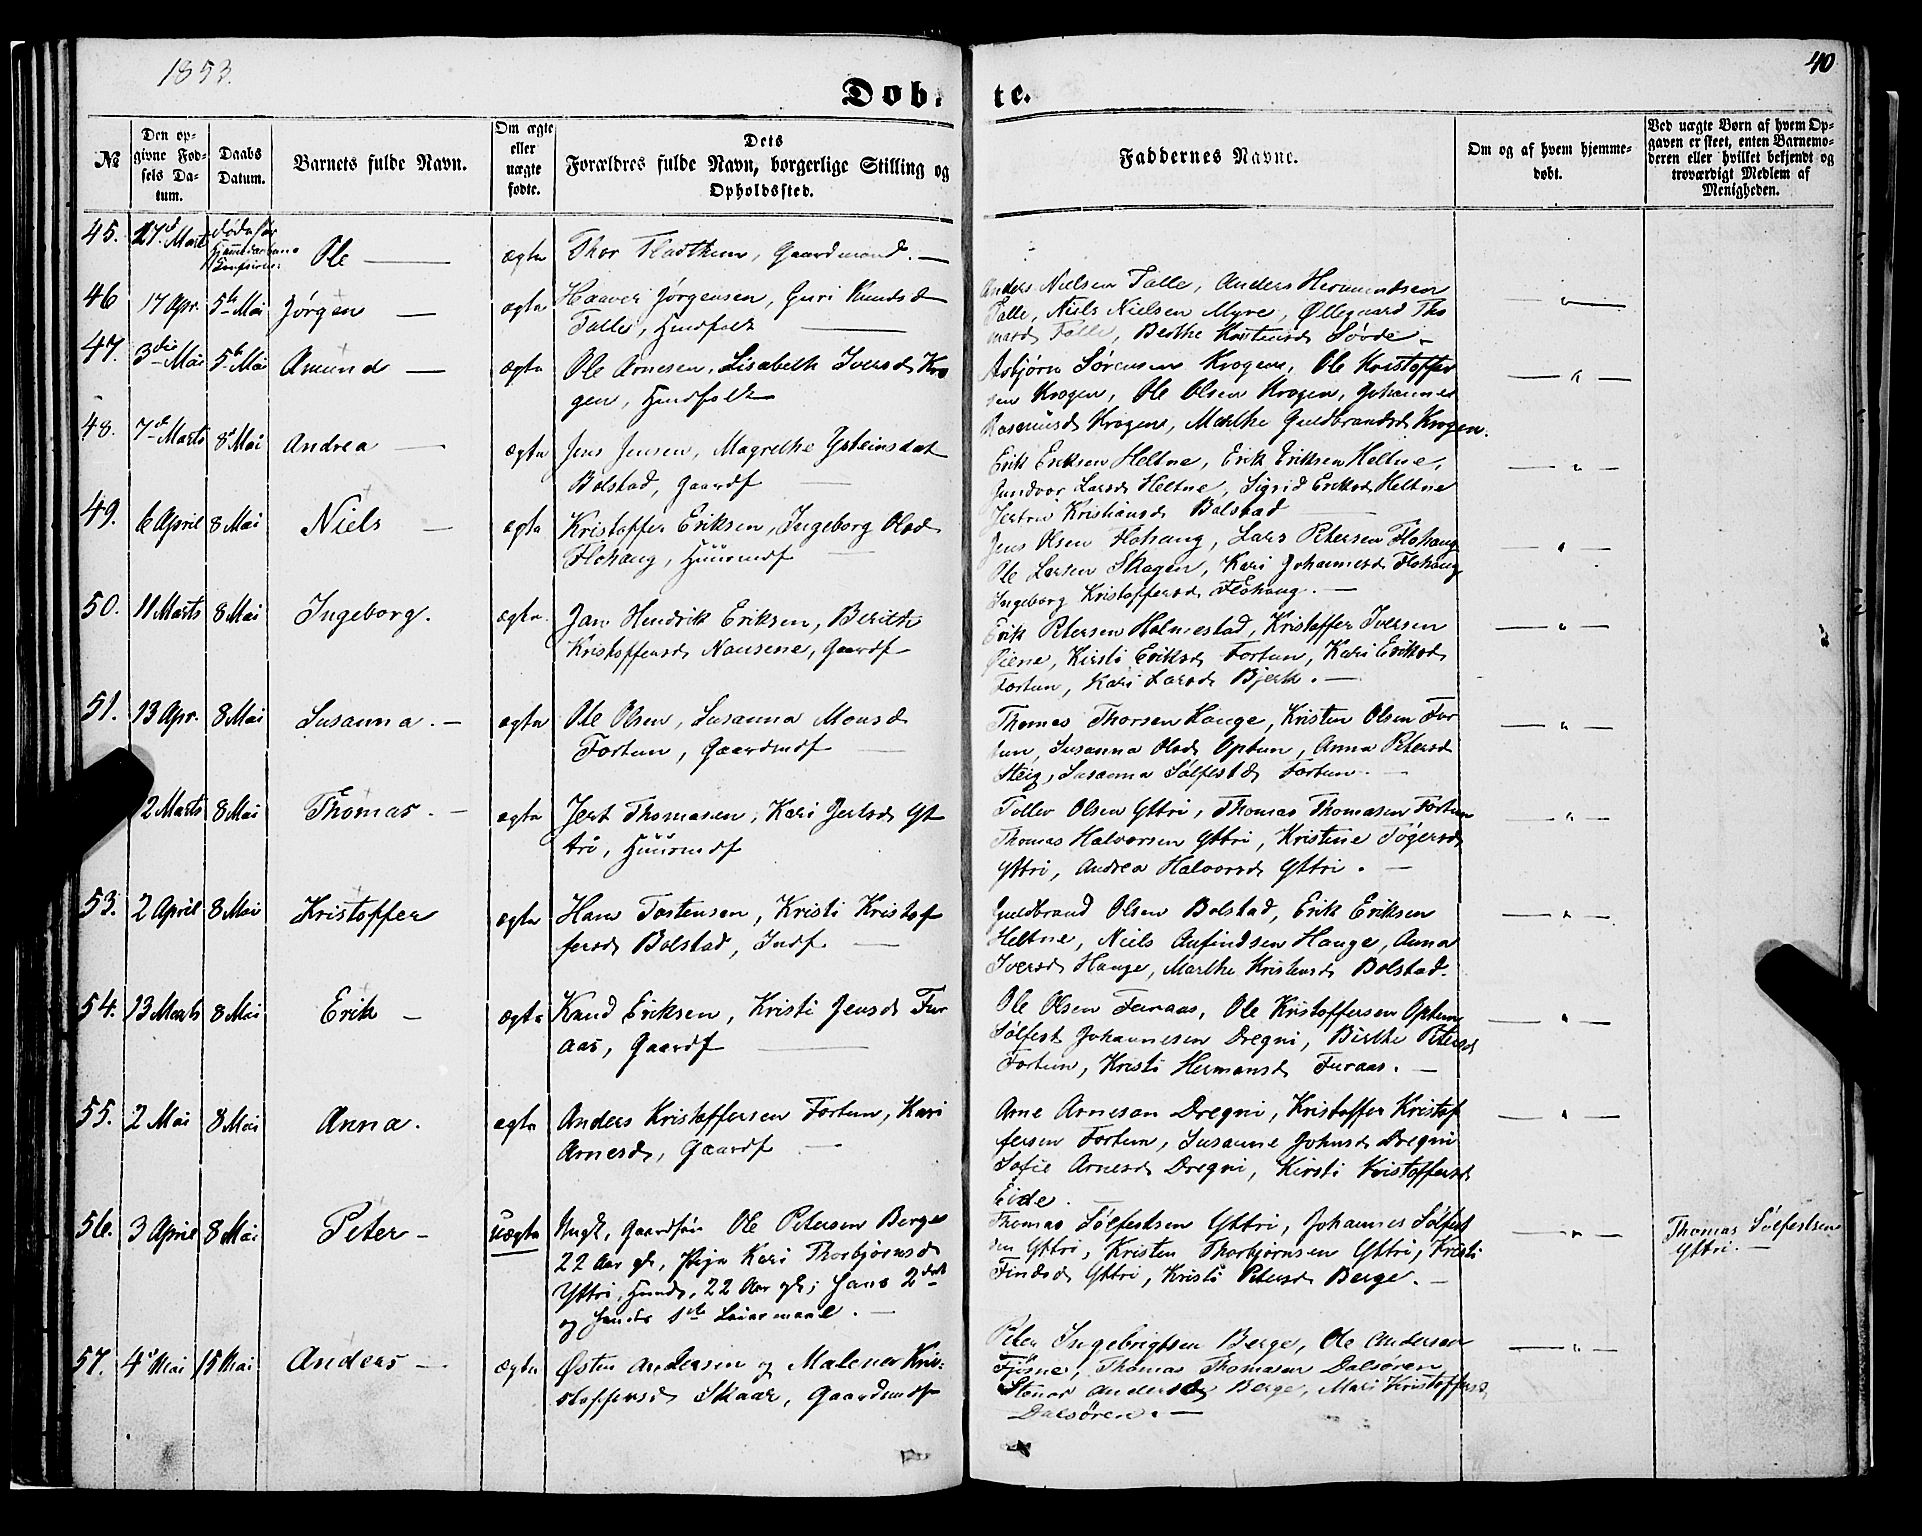 1853.
40
Døb-
te.
№
Den op-
givne Fød-
sels Da-
tum.
Daabs
Datum.
Barnets fulde Navn.
Om ægte
eller
uægte
fødte.
Dets
Forældres fulde Navn, borgerlige Stilling og
Opholdssted.
Faddernes Navne.
Om og af hvem hjemme-
døbt.
Ved uægte Børn af hvem Op-
gaven er skeet, enten Barnemo-
deren eller hvilket bekjendt og
troværdigt Medlem af
Menigheden.
45. 27 Marts Ole — ægte Thor Fladthun, Gaardmand. —
46 17 Apr. 5te Mai Jørgen — ægte Haaver Jørgensen, Guri Knudsd
Talle, Huusfolk —
Anders Nielsen Talle, Anders Hermundsen
Talle, Niels Nielsen Myre, Øllegaard Tho
masd Talle, Berthe Søvde. —
— " —
47. 3die Mai 5te Mai Amund — ægte Ole Arnesen, Lisabeth Iversd Kro
gen, Huusfolk
Asbjørn Sørensen Krogen, Ole Kristoffer
sen Krogen, Ole Olsen Krogen, Johannes
Rasmusd Krogen, Marthe Guldbrandsd Krogen.
— " —
48. 7de Marts 8de Mai Andrea — ægte Jens Jensen, Magrethe Ysteinsdat
Bolstad, Gaardf —
Erik Eriksen Heltne, Erik Eriksen Heltne,
Gundvor Larsd Heltne, Sigrid Eriksd Heltne
Jertrü Kristiansd Bolstad —
— " —
49. 6 April 8 Mai Niels — ægte Kristoffer Eriksen, Ingeborg Olsd
Flohaug, Huusmdf —
Jens Olsen Flohaug, Lars Petersen Flohaug
Ole Larsen Skagen, Kari Johannesd Flohaug
Ingeborg Kristoffersd Flohaug. —
— " —
50. 11 Marts 8 Mai Ingeborg. ægte. Jan Hendrik Eriksen, Berithe
Kristoffersd Nausene, Gaardf —
Erik Petersen Holmestad, Kristoffer Iversen
Øiene, Kirsti Eriksd Fortun, Kari Eriksd
Fortun, Kari Larsd Bjerk. —
— " —
51. 13 Apr. 8 Mai Susanna. — ægte Ole Olsen, Susanna Monsd
Fortun, Gaardmdf —
Thomas Thorsen Hauge, Kristen Olsen For
tun, Susanna Olsd Optun, Anna Petersd
Steig, Susanna Sølfestd Fortun. —
— " —
2 Marts 8 Mai Thomas. — ægte Jert Thomasen, Kari Jertsd Yt
tri, Huusmdf
Tollev Olsen Yttri, Thomas Thomasen Fortun
Thomas Halvorsen Yttri, Kristine Tøgersd
Yttri, Andrea Halvorsd Yttri. —
— " —
53. 2 April 8 Mai Kristoffer ægte Hans Tostensen, Kristi Kristof
fersd Bolstad, Indf. —
Guldbrand Olsen Bolstad, Erik Eriksen
Heltne, Niels Anfindsen Hauge, Anna
Iversd Hauge, Marthe Kristensd Bolstad.
— " —
54. 13 Marts 8 Mai Erik — ægte Knud Eriksen, Kristi Jensd Fur
aas, Gaardf —
Ole Olsen Furaas, Ole Kristoffersen Optun
Sølfest Johannesen Dregni, Birthe Petersd
Fortun, Kristi Hermansd Furaas. —
— " —
55. 2 Mai 8 Mai Anna. ægte Anders Kristoffersen Fortun, Kari
Arnesd, Gaardf —
Arne Arnesen Dregni, Kristoffer Kristof
fersen Fortun, Susanne Johnsd Dregni
Sofie Arnesd Dregni, Kirsti Kristoffersd
Eide.
— " —
56. 3 April 8 Mai Peter — uægte Ungk, Gaardsøn Ole Petersen Berge
22 Aar gl, Pige Kari Thorbjørnsd
Yttri, Huusd, 22 Aar gl; hans 2det
og hendes 1ste Leiermaal. —
Thomas Sølfestsen Yttri, Johannes Sølfest
sen Yttri, Kristen Thorbjørnsen Yttri, Kristi
Findsd Yttri, Kristi Petersd Berge. —
— " —
Thomas Sølfestsen
Yttri. —
57. 4de Mai 15 Mai Anders — ægte Østen Andersen og Malena Kri-
stoffersd Skaar, Gaardmdf
Peter Ingebrigtsen Berge, Ole Andersen
Fjøsne, Thomas Thomasen Dalsøren
Andersd Berge, Mari Kristoffersd
Dalsøren. —
— " —